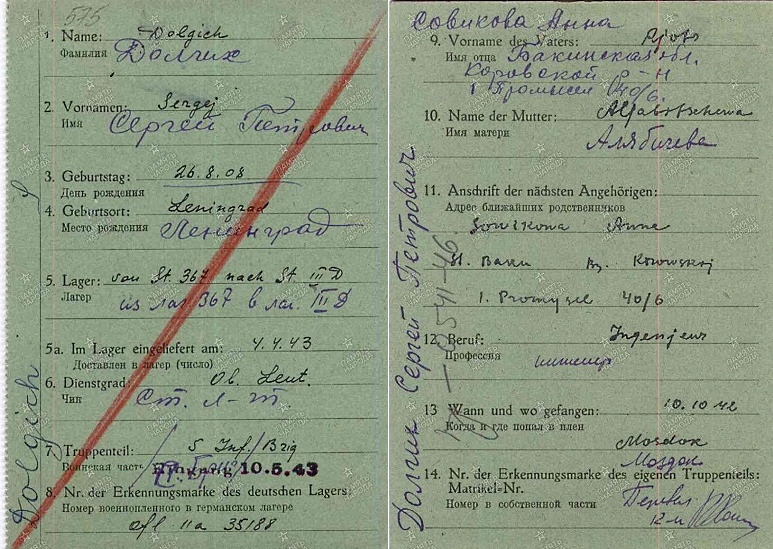 575
1. Name: Dolgich
Фамилия Долгих
2. Vornamen: Sergej
Имя Сергей Петрович
3. Geburtstag: 26.8.08
День рождения
4. Geburtsort: Leningrad
Место рождения Ленинград
5. Lager: von St. 367 nach St. III D
Лагер из лаг 367 в лаг. III D
5a. Im Lager eingeliefert am: 4.4.43
Доставлен в лагер (число)
6. Dienstgrad: Ob. Leut.
Чин Ст. л-т
7. Truppenteil: 5 Inf./Brig
Воинская часть 10.5.43
8. Nr. der Erkennungsmarke des deutschen Lagers:
Номер военнопленного в германском лагере
Ofl 11a 35188
Dolgich
Совикова Анна
9. Vorname des Vaters: Pjotr
Имя отца Бакинская обл.
Коровской р-н
1 Промысел 40/6.
10. Name der Mutter:
Имя матери Алябичева
11. Anschrift der nächsten Angehörigen:
Адрес ближайших родственников
Sowikowa Anna
St. Baku Kirowskoj
1. Promysel 40/6
12. Beruf: Ingenjeur
Профессия инженер
13 Wann und wo gefangen: 10.10.42
Когда и где попал в плен
Mosdok
Моздок
14. Nr. der Erkennungsmarke des eigenen Truppenteils:
Matrikel-Nr.
Номер в собственной части Перевел
Долгих Сергей Петрович